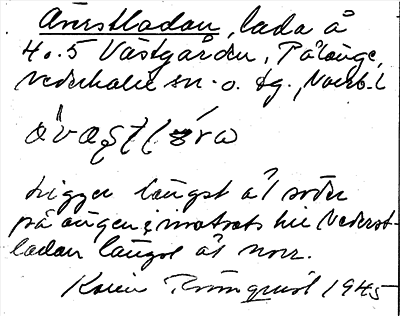 Överstladan, lada å
4 o. 5 Västgården, Pålänge,
Nederkalix sn. o. tg., Norrb. l
ligger längst åt söder
på ängen i motsats till Nederst-
ladan längst åt norr.
Karin Rönnquist 1945